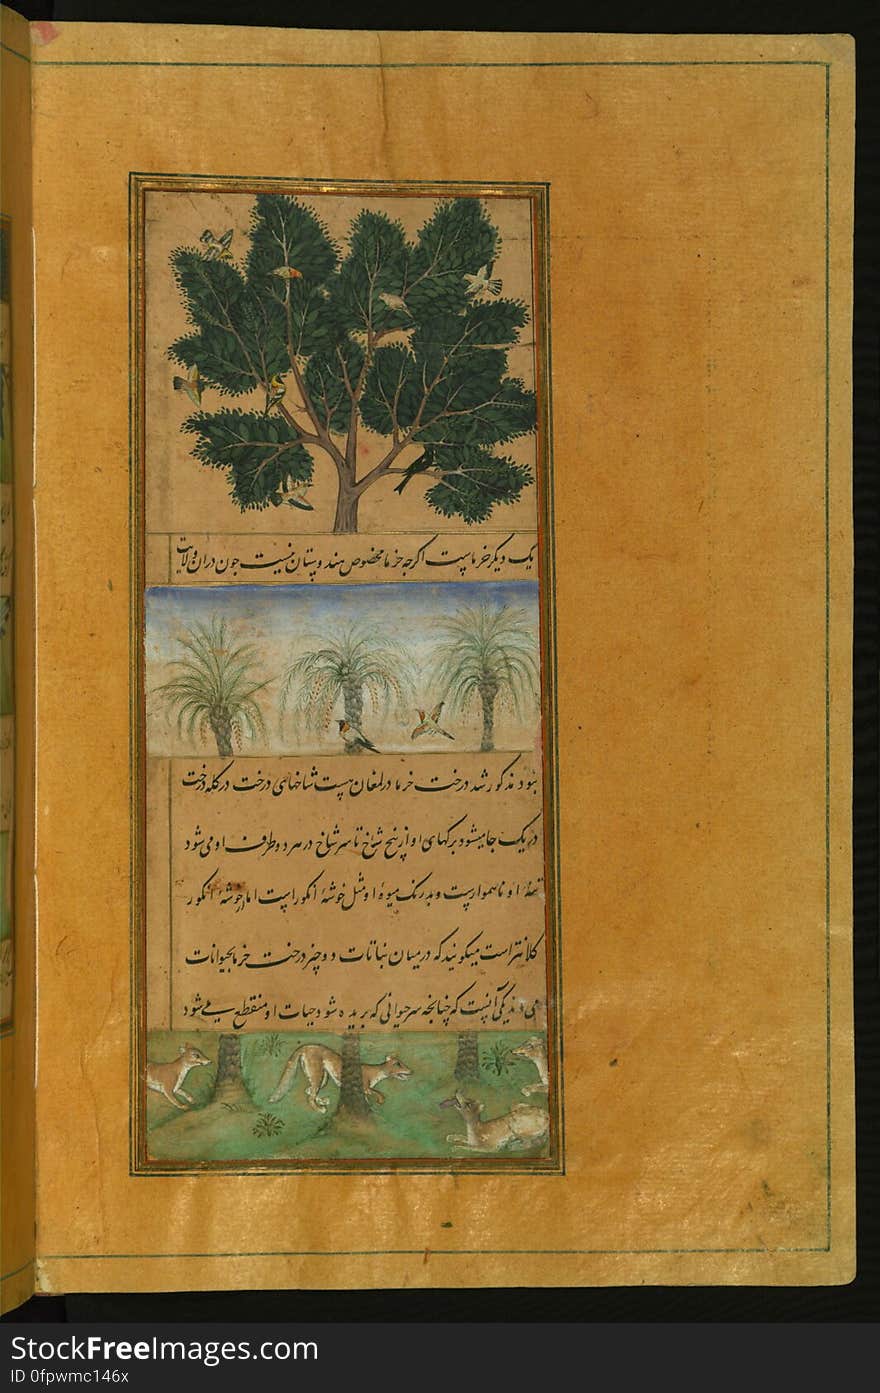 یک دیگر خرماست اگرچه خرما مخصوص هندوستان نیست چون دران ولایت
نبود مذکور شد درخت خرما در لمغان هست شاخهای درخت در کله درخت
در یک جا میشود برگهای او از بیخ شاخ تا سر شاخ در هر دو طرف او می شود
تنهٔ او ناهموارست و بدرنگ میوهٔ او مثل خوشهٔ انگورست اما از خوشهٔ انگور
کلانتر است میگویند که در میان نباتات دو چیز درخت خرما بحیوانات
می ماند یکی آنست که چنانچه سر حیوانی که بریده شود حیات او منقطع می شود
StockFreeImages.com
ID 0fpwmc146x